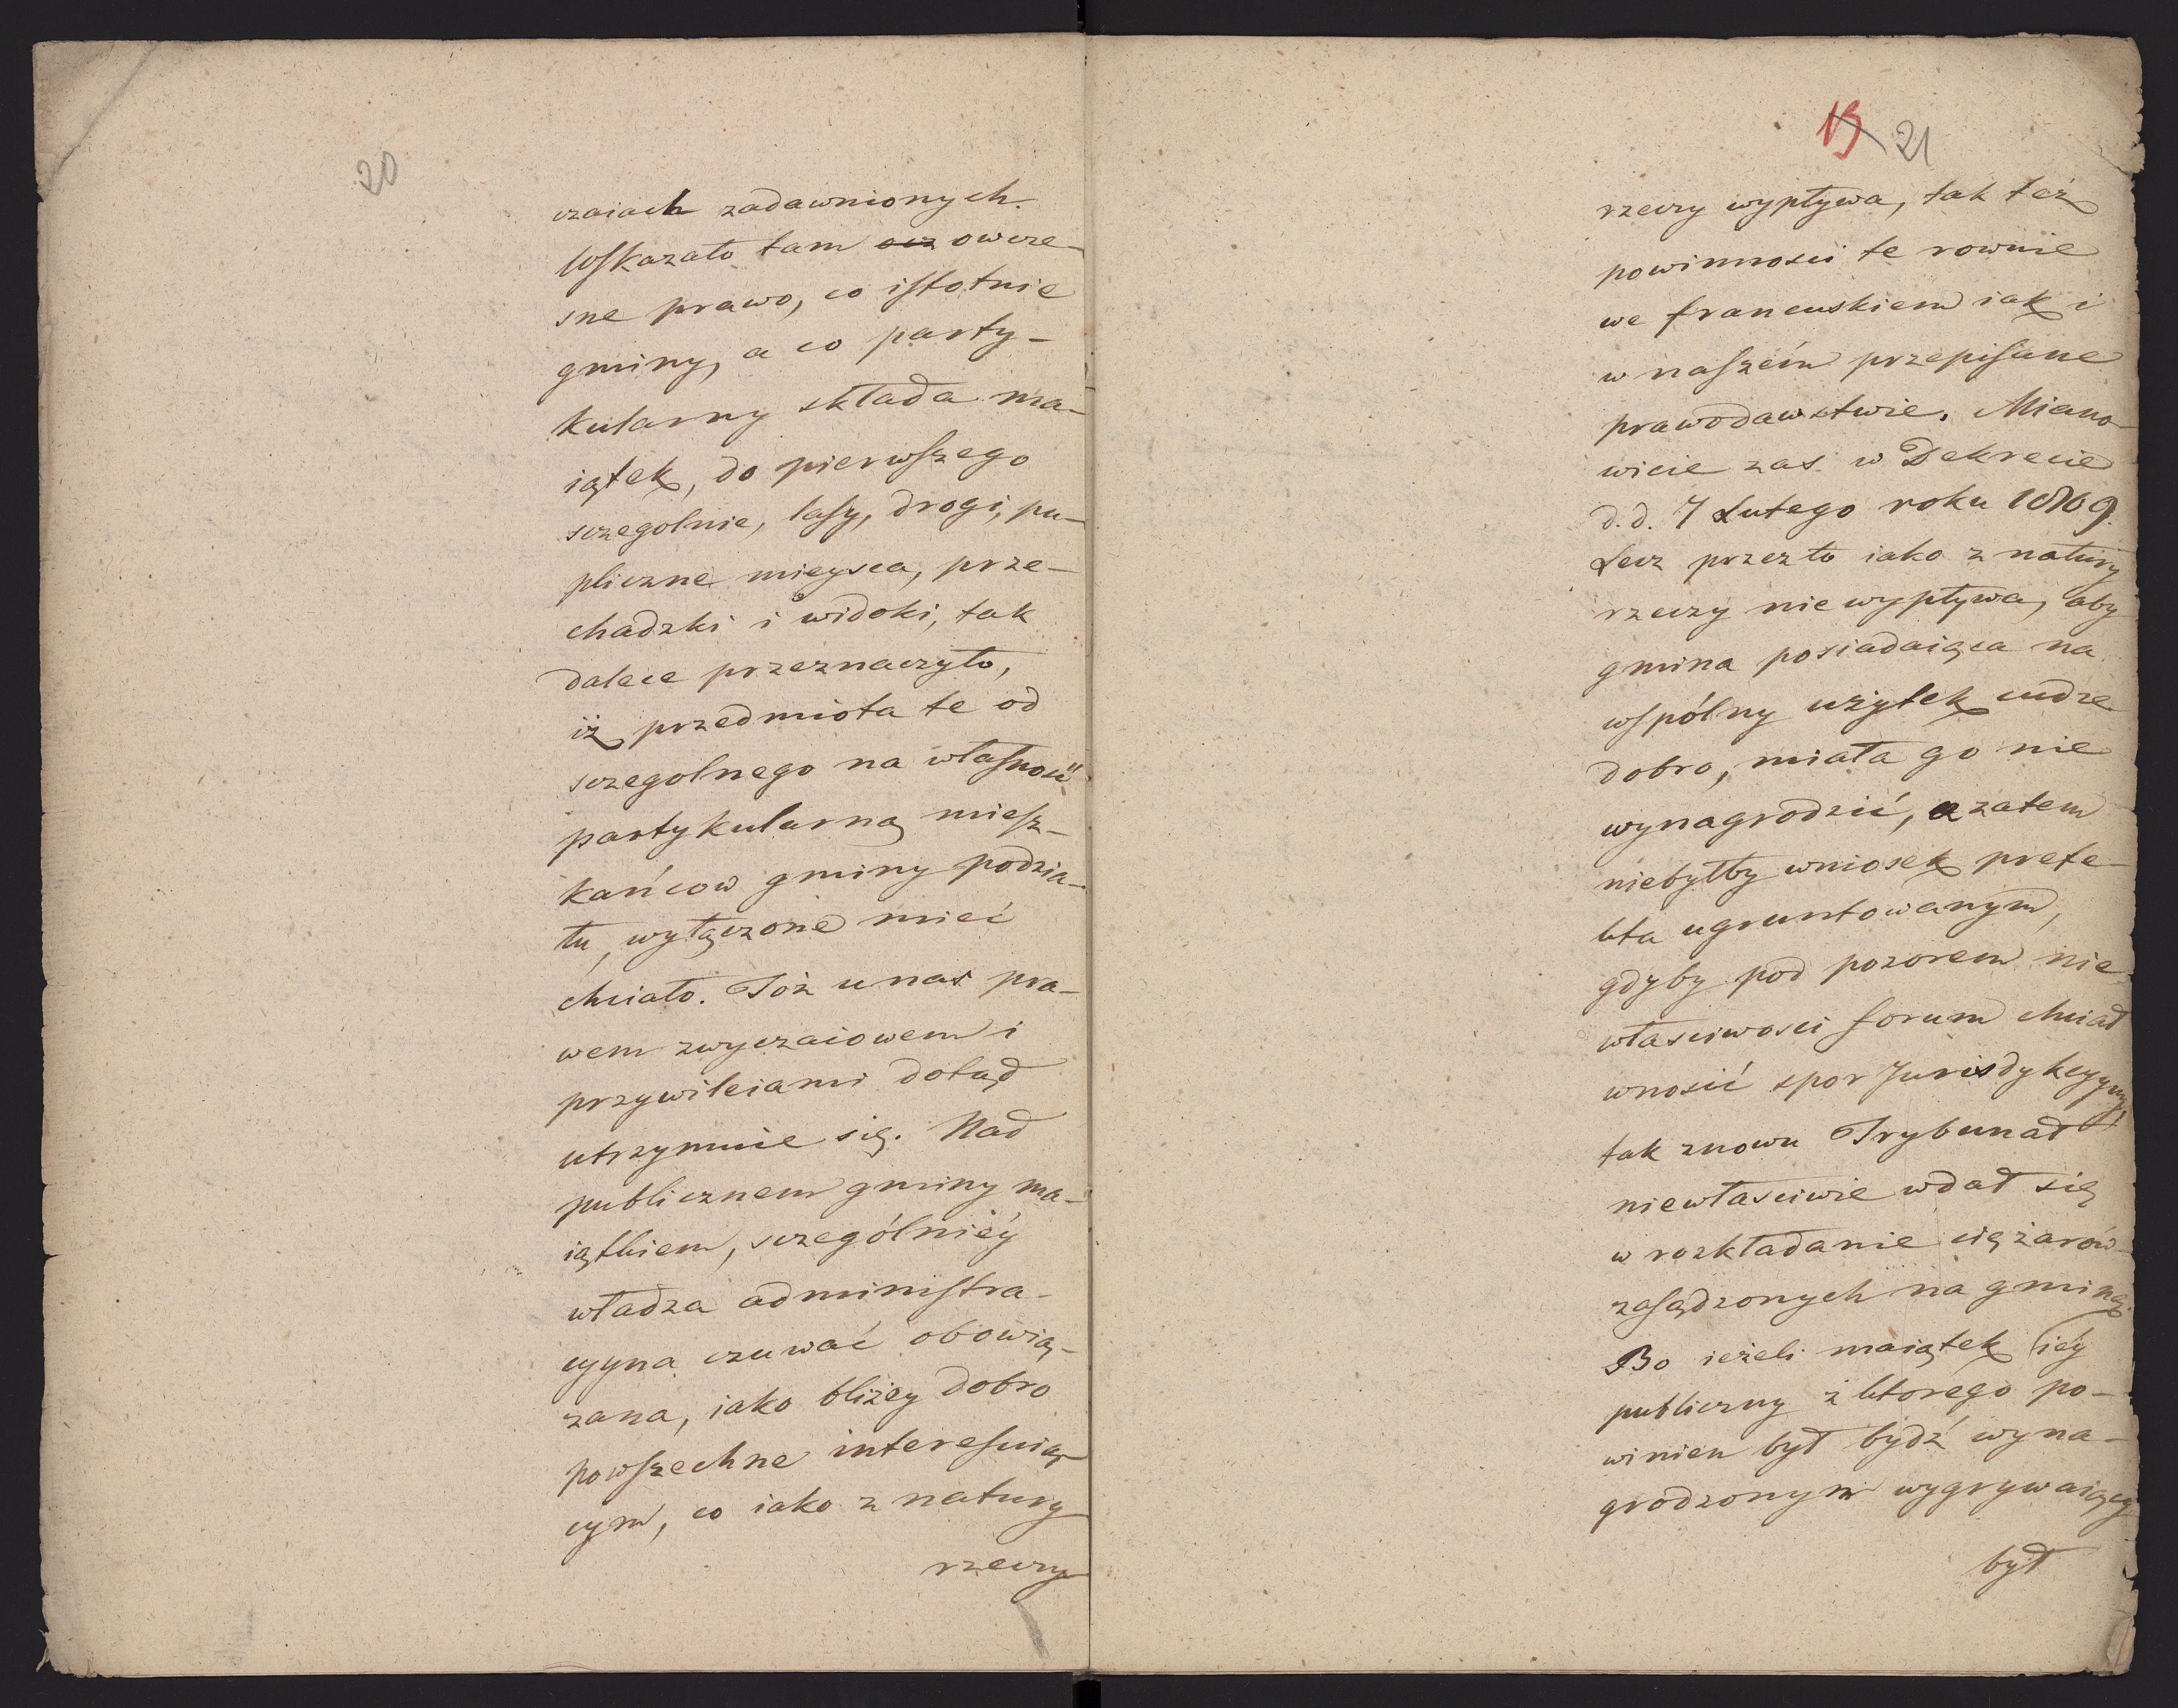 20
czaiach zadawnionych.
Wskazało tam owcze-
sne prawo, co istotnie
gminy, a co party-
kularny składa ma-
iątek, do pierwszego
sczegolnie, lasy, drogi, pu-
pliczne mieysca, prze-
chadzki i widoki, tak
dalece przeznaczyło,
iż przedmiota te od
sczegolnego na własność
partykularną miesz-
kańcow gminy podzia-
łu, wyłączone mieć
chciało. Toż u nas pra-
wem zwyczaiowem i
przywileiami dotąd
utrzymuie się. Nad
publicznem gminy ma-
iątkiem, sczególniéy
władza administra-
cyyna czuwać obowią-
zana, iako bliżey dobro
powszechne interesuią-
cym, co iako z natury
rzeczy
19 21
rzeczy wypływa, tak też
powinnosci te rownie
we francuskiem iak i
w naszém przepisane
prawodawstwie. Miano-
wicie zas w Dekrecie
d. d. 7 Lutego roku 1809.
Lecz przez to iako z natury
rzeczy nie wypływa, aby
gmina posiadaiąca na
wspólny użytek cudze
dobro, miała go nie
wynagrodzić, a zatem
niebyłby wniosek prefe-
kta ugruntowanym,
gdyby pod pozorem nie-
własciwosci forum chciał
wnosić spor Jurisdykcyyny,
tak znowu Trybunał
niewłasciwie wdał się
w rozkładanie ciężarów
zasądzonych na gminę.
Bo ieżeli maiątek iéy
publiczny z ktorego po-
winien był bydź wyna-
grodzonym wygrywaiący
był